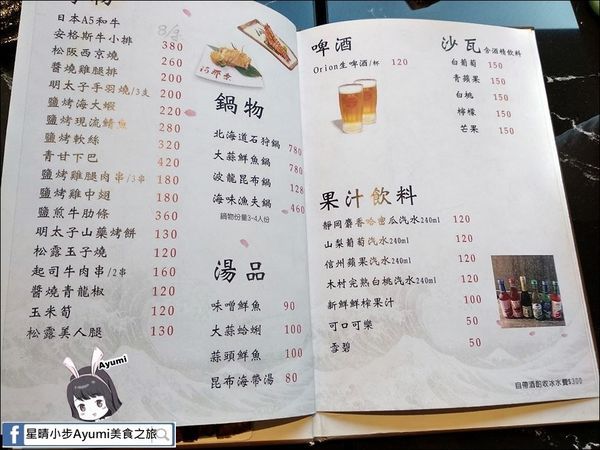 日本A5和牛 8/3
安格斯牛小排 380
松阪西京燒 260
醬燒雞腿排 200
明太子手羽燒/3支 200
鹽烤海大蝦 220
鹽烤現流鯖魚 280
鹽烤軟絲 320
青甘下巴 420
鹽烤雞腿肉串/3串 180
鹽烤雞中翅 180
鹽煎牛肋條 360
明太子山藥烤餅 130
松露玉子燒 120
起司牛肉串/2串 160
醬燒青龍椒 120
玉米筍 120
松露美人腿 130
鍋物
北海道石狩鍋 780
大蒜鮮魚鍋 780
波龍昆布鍋 1280
海味漁夫鍋 460
鍋物份量3-4人份
湯品
味噌鮮魚 90
大蒜蛤蜊 100
蒜頭鮮魚 100
昆布海帶湯 80
啤酒
Orion生啤酒/杯 120
沙瓦 含酒精飲料
白葡萄 150
青蘋果 150
白桃 150
檸檬 150
芒果 150
果汁飲料
靜岡麝香哈密瓜汽水240ml 120
山梨葡萄汽水240ml 120
信州蘋果汽水240ml 120
木村完熟白桃汽水240ml 120
新鮮鮮榨果汁 100
可口可樂 50
雪碧 50
自帶酒酌收冰水費$300
Ayumi
星晴小步Ayumi美食之旅